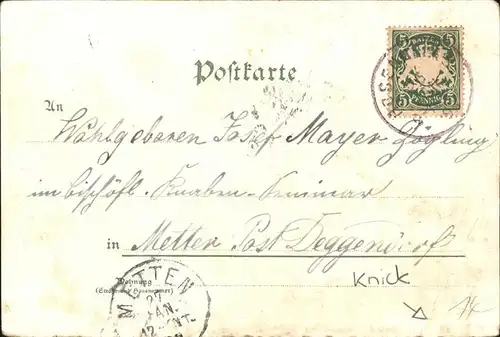 BAYERN
5 5
5 PFENNIG 5
Postkarte
An
Wohlgeboren Josef Mayer Zögling
im bischöfl. Knaben-Seminar
in Metten Post Deggendorf
Knick
Wohnung
METTEN
27
JAN.